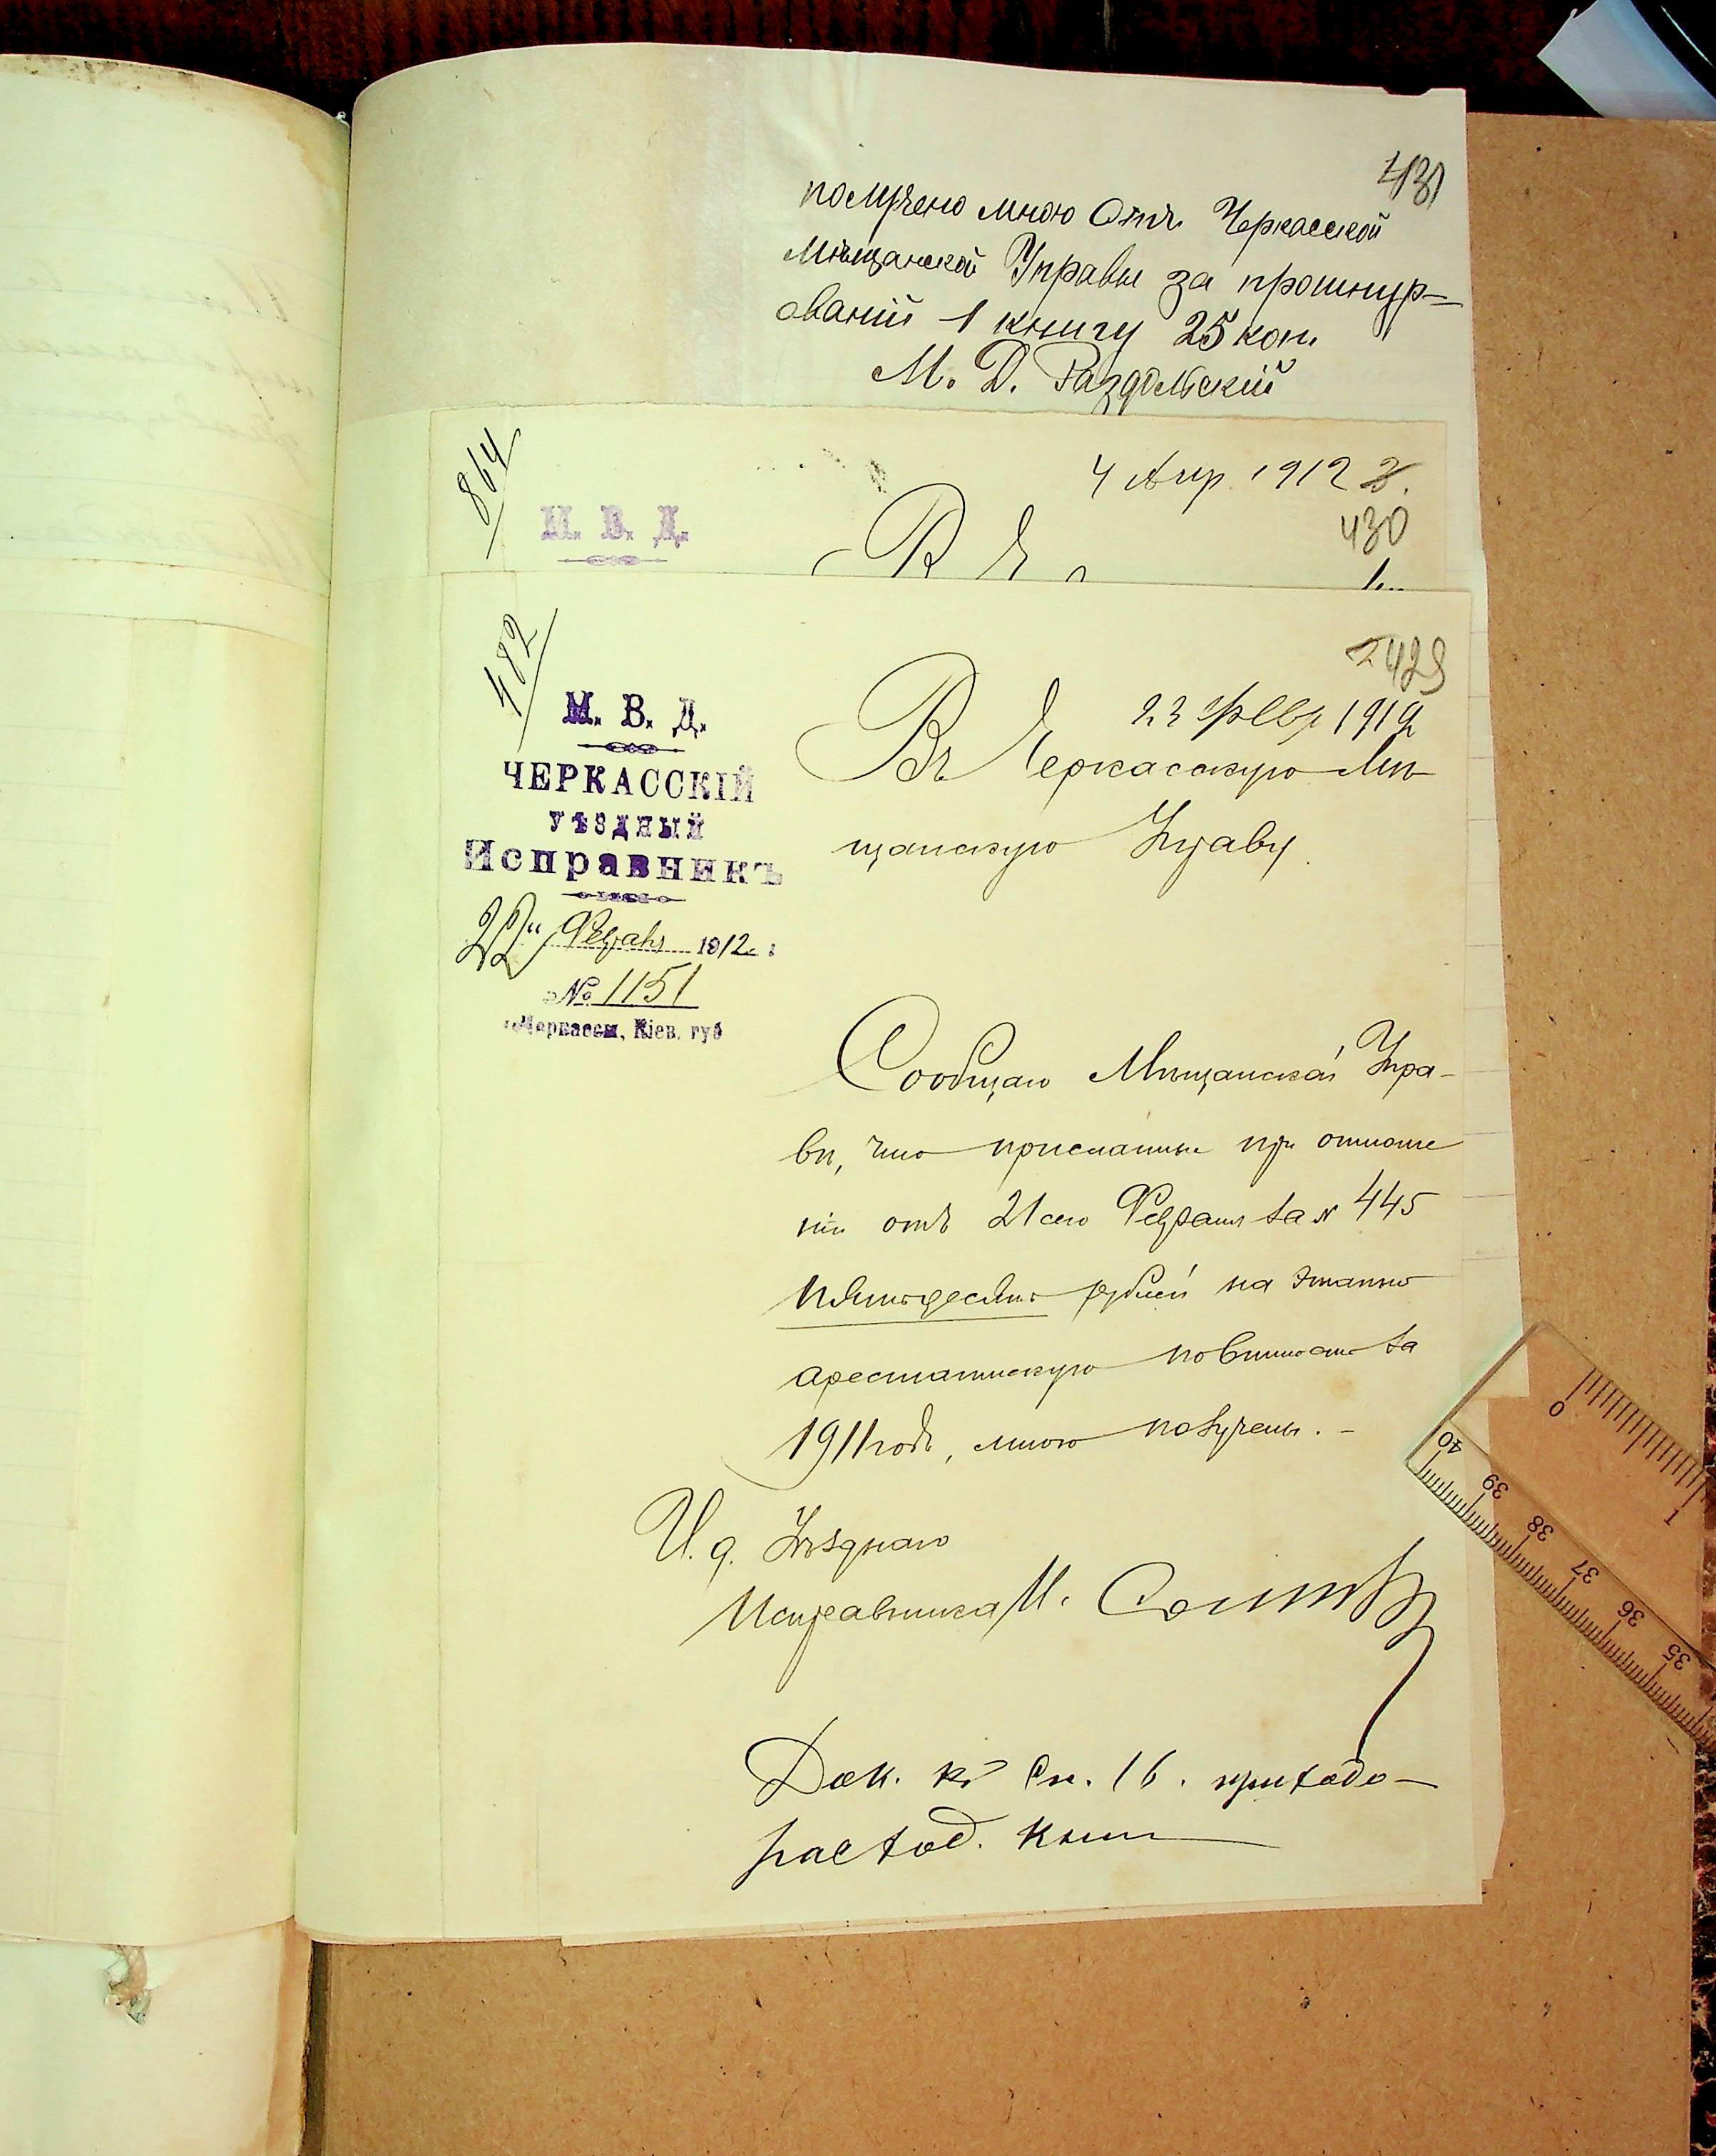 431
получено мною Отъ Черкасской
Мѣщанской Управы за прошнур-
ованій 1 книгу 25 коп.
М. Д. Раздольскій
864
4 Апр. 1912 г.
430
М. В. Д.
В Ч
482
429
23 февр 1912
М. В. Д.
ЧЕРКАССКІЙ
УѢЗДНЫЙ
Исправникъ
22" Февраля 1912 г.
№ 1151
г. Черкассы, Кіев. губ
Въ Черкасскую Мѣ-
щанскую Управу.
Сообщаю Мѣщанской Упра-
вѣ, что присланные при отноше
ніи отъ 21 сего Февраля за № 445
пятьдесятъ рублей на этапно
арестантскую повинность за
1911 годъ, мною получены. -
И. д. Уѣзднаго
Исправника
Док. къ ст. 16. приходо-
расход. книги
0
1
40
39
38
37
36
35